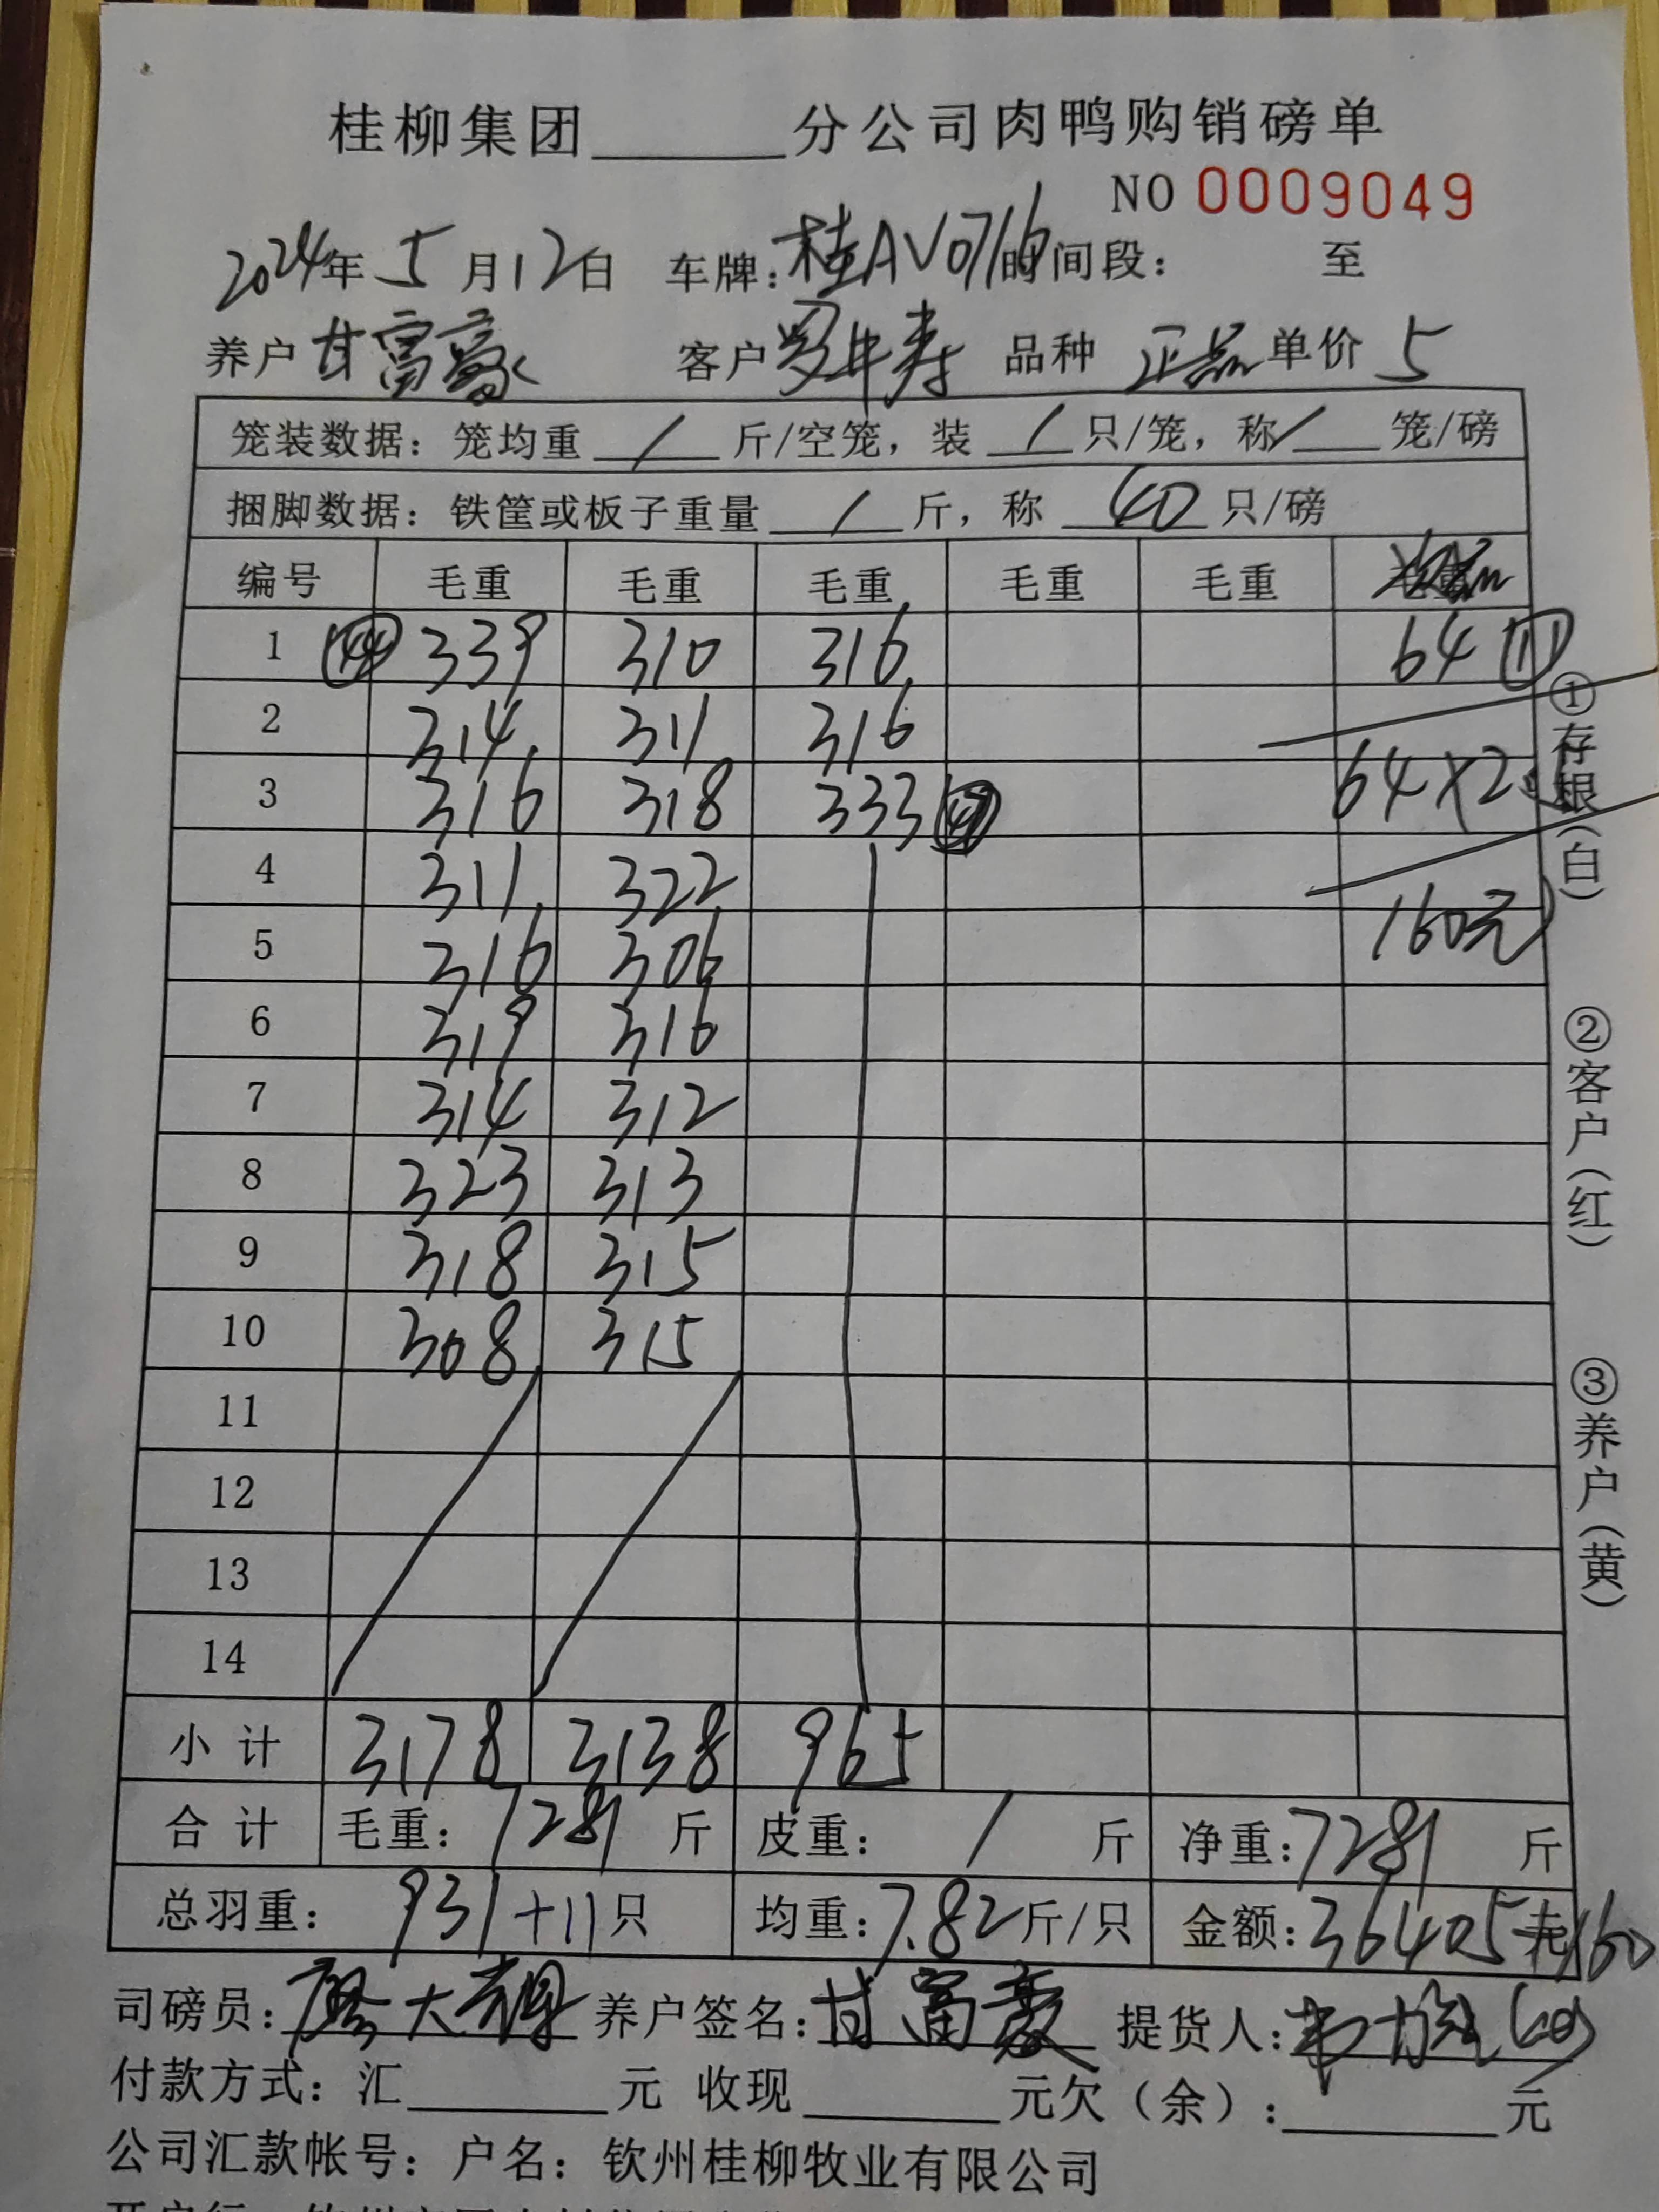 桂柳集团______分公司肉鸭购销磅单
NO 0009049
2024年 5 月12日 车牌:桂AV0716时间段: 至
养户 甘富豪 客户 罗牛寿 品种 正品 单价 5
笼装数据: 笼均重 / 斤/空笼, 装 / 只/笼, 称 / 笼/磅
捆脚数据: 铁筐或板子重量 / 斤, 称 40 只/磅
编号 毛重 毛重 毛重 毛重 毛重
1 339 310 316 64 ⑪
2 314 311 316
3 316 318 333 64×2.5
4 311 322
5 316 306 160元
6 319 316
7 314 312
8 323 313
9 318 315
10 308 315
11
12
13
14
小计 3178 3138 965
合计 毛重: 7281 斤 皮重: / 斤 净重: 7281 斤
总羽重: 931+11只 均重: 7.82斤/只 金额: 36405元+160
司磅员: 廖大 养户签名: 甘富豪 提货人:
付款方式: 汇______元 收现______元欠(余):______元
公司汇款帐号: 户名: 钦州桂柳牧业有限公司
①存根(白)
②客户(红)
③养户(黄)